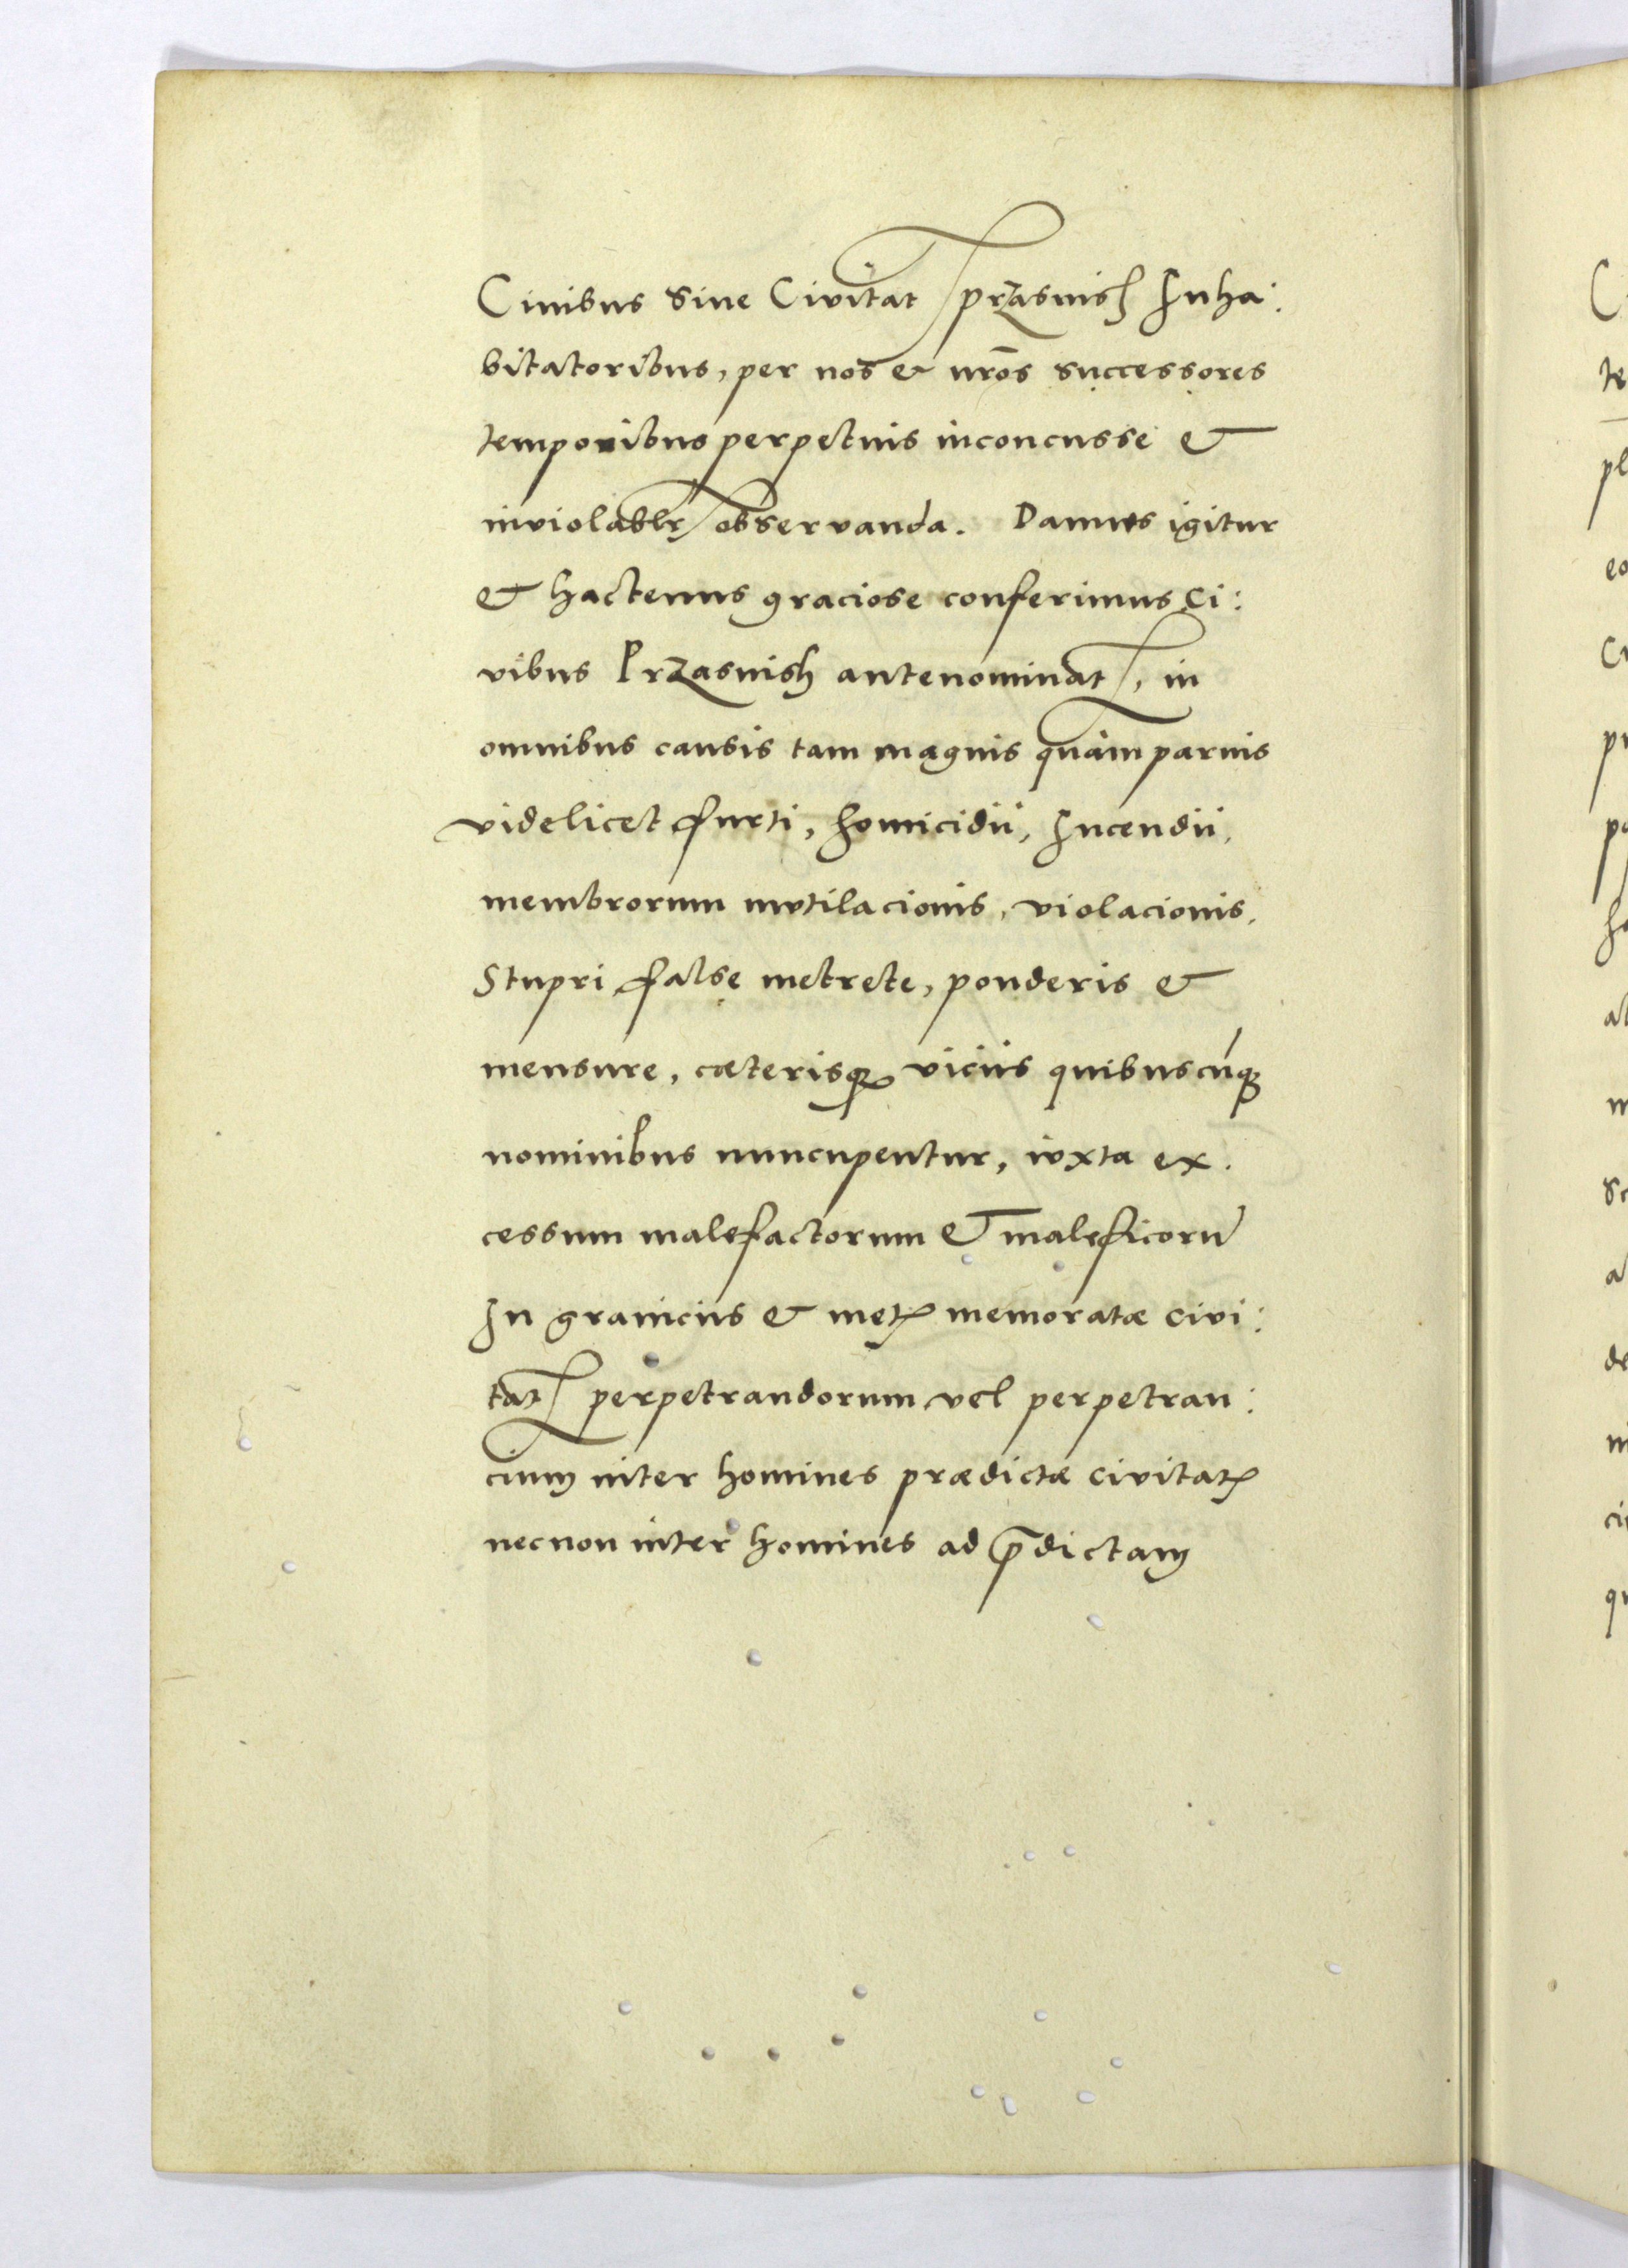 Civibus sive Civitat Przasnish Inha:
bitatoribus, per nos & nr̄os successores
temporibus perpetuis inconcusse &
inviolablr observanda. Damus igitur
& hactenus graciose conferimus Ci:
vibus Przasnish antenominat, in
omnibus causis tam magnis quàm parvis
videlicet furti, homicidii, Incendii,
membrorum mutilacionis, violacionis,
Stupri false metrete, ponderis &
mensure, cæterisqꝫ viciis quibuscúnqꝫ
nominibus nuncupentur, iuxta ex.
cessum malefactorum & maleficorū
In graniciis & metꝭ memoratæ civi:
tatꝭ perpetrandorum vel perpetran:
cium inter homines prædictæ civitatꝭ
necnon inter homines ad p̄dictam